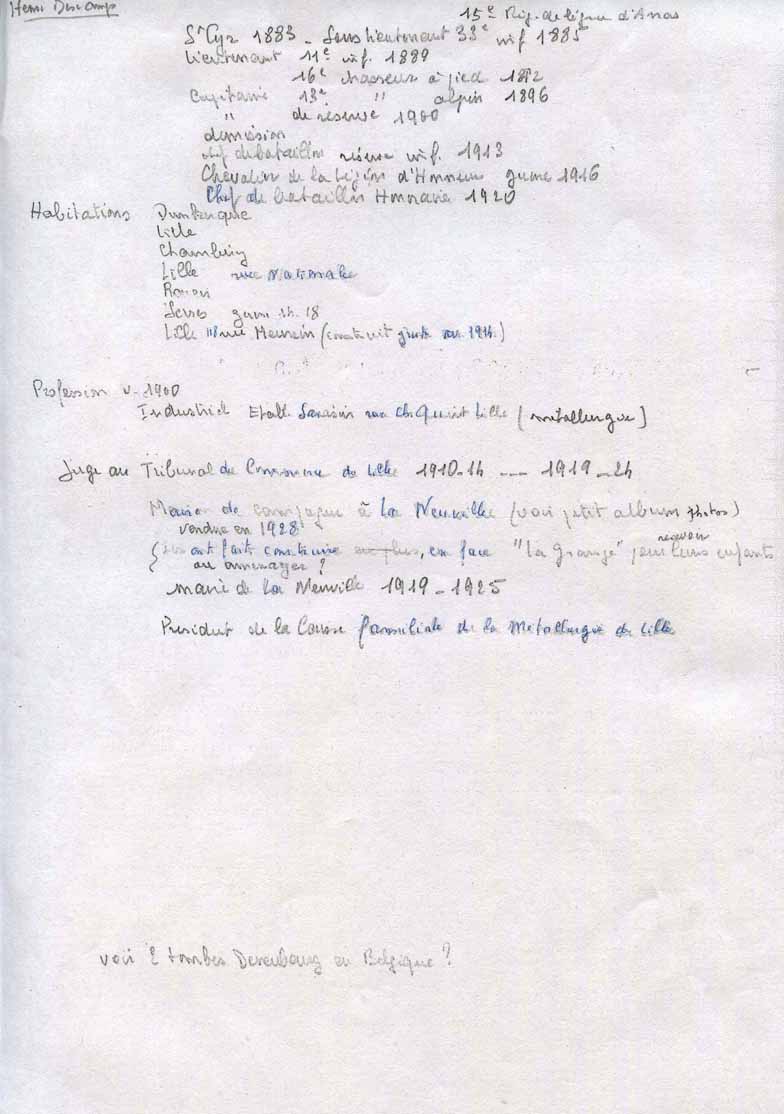 Henri Descamps
15e Rég. de ligne d'Arras
St Cyr 1883 - Sous lieutenant 33e inf 1885
Lieutenant 11e inf. 1889
16e chasseur à pied 1892
Capitaine 13e " alpin 1896
" de réserve 1900
démission
chef de bataillon réserve inf. 1913
Chevalier de la Légion d'Honneur guerre 1916
Chef de bataillon Honoraire 1920
Habitations Dunkerque
Lille
Chambéry
Lille rue Nationale
Rouen
guerre 14.18
Lille 118 rue Meurein (construit juste 1914)
Profession v. 1900
Industriel Etabl. rue Ch. Quint Lille (métallurgie)
Juge au Tribunal de Commerce de Lille 1910-14 --- 1919-24
Maison de campagne à La Neuville (voir petit album photos)
vendue en 1928
(ils ont faits construire en plus, en face "La Grange" pour recevoir leurs enfants
ou aménager ?
maire de La Neuville 1919-1925
Président de la Caisse familiale de la Métallurgie de Lille
voir 2 tombes en Belgique ?